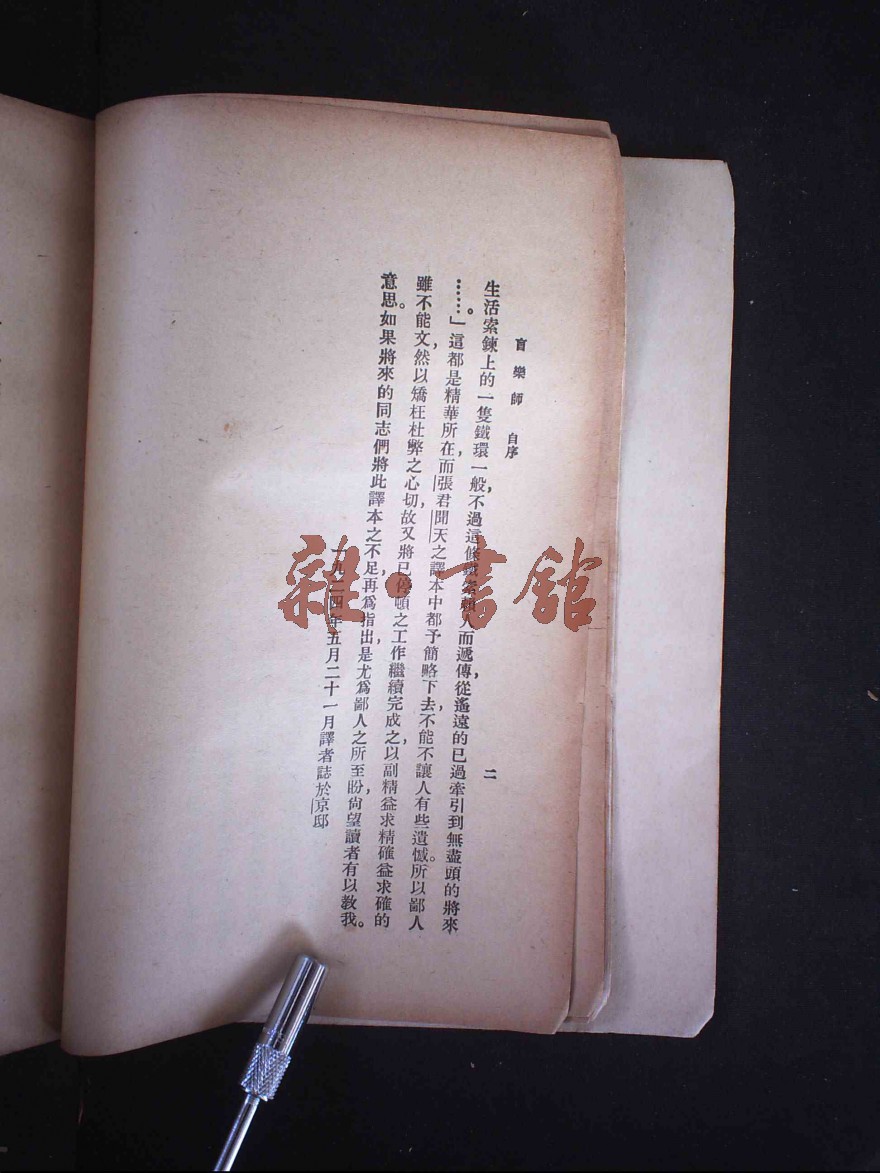 盲樂師 自序 二
生活索鍊上的一隻鐵環一般，不過這條鐵索賴人而遞傳，從遙遠的已過牽引到無盡頭的將來
……。」這都是精華所在，而張君聞天之譯本中都予簡略下去，不能不讓人有些遺憾。所以鄙人
雖不能文，然以矯枉杜弊之心切，故又將已停頓之工作繼續完成之，以副精益求精確益求確的
意思。如果將來的同志們將此譯本之不足，再爲指出，是尤爲鄙人之所至盼，尙望讀者有以教我。
一九二四年五月二十一月譯者誌於京邸
雜·書館